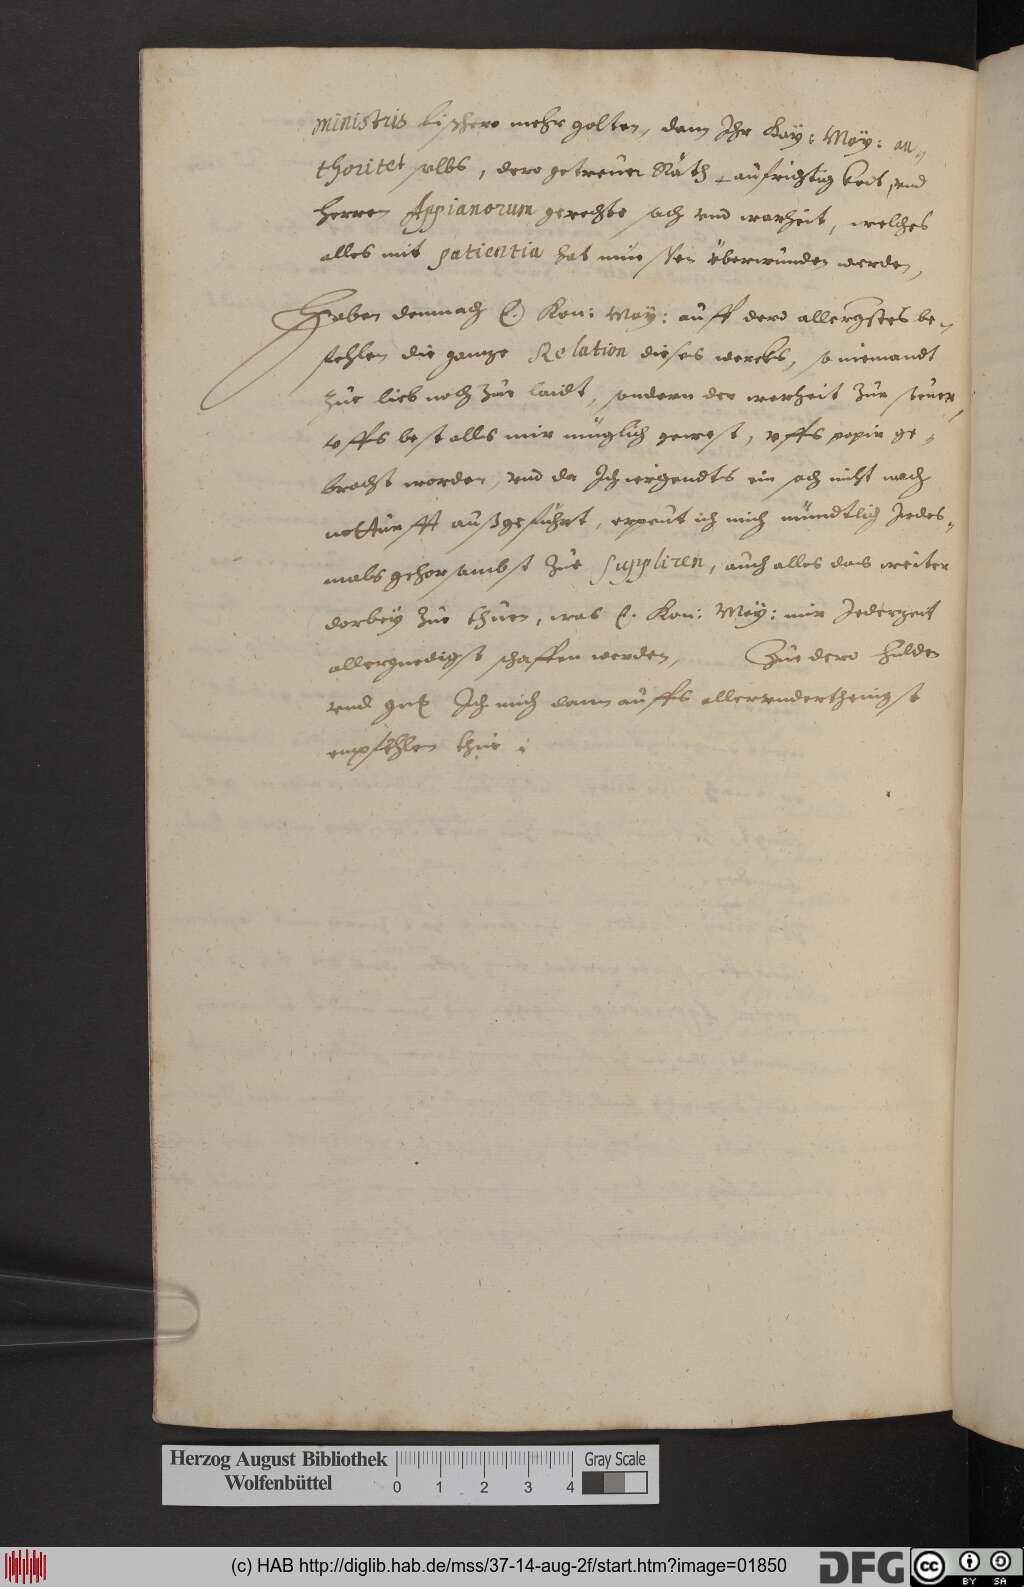 ministris bißhero mehr golten, dann Ihr Kay: May: au,,
thoritet selbs, dero getreuen Räth aufrichtigkeit, vnd
herren Appianorum gerechte sach vnd warheit, welches
alles mit patientia hat müessen überwunden werden,
Haben demnach E. Kön: May: auff dero allergsts be,,
felhen die gantze Relation dieses wercks, so niemandt
zue lieb noch zue laidt, sondern der warheit zur steuer,
vffs best alls mir müglich gewest, vffs papir ge,,
bracht worden, vnd da Ich nirgendts ein sach nicht nach
notturfft außgeführt, erpeut ich mich mündtlich Jedes,,
mals gehorsambst zue suppliren, auch alles das weiter
darbey zue thuen, was E. Kön: May: mir Jederzeit
allergnedigst schaffen werden, Zue dero hulden
vnd gn. Ich mich dann auffs allervnderthenigst
empfehlen thue
Herzog August Bibliothek
Wolfenbüttel
0 1 2 3 4
Gray Scale
(c) HAB http://diglib.hab.de/mss/37-14-aug-2f/start.htm?image=01850
DFG
cc BY SA